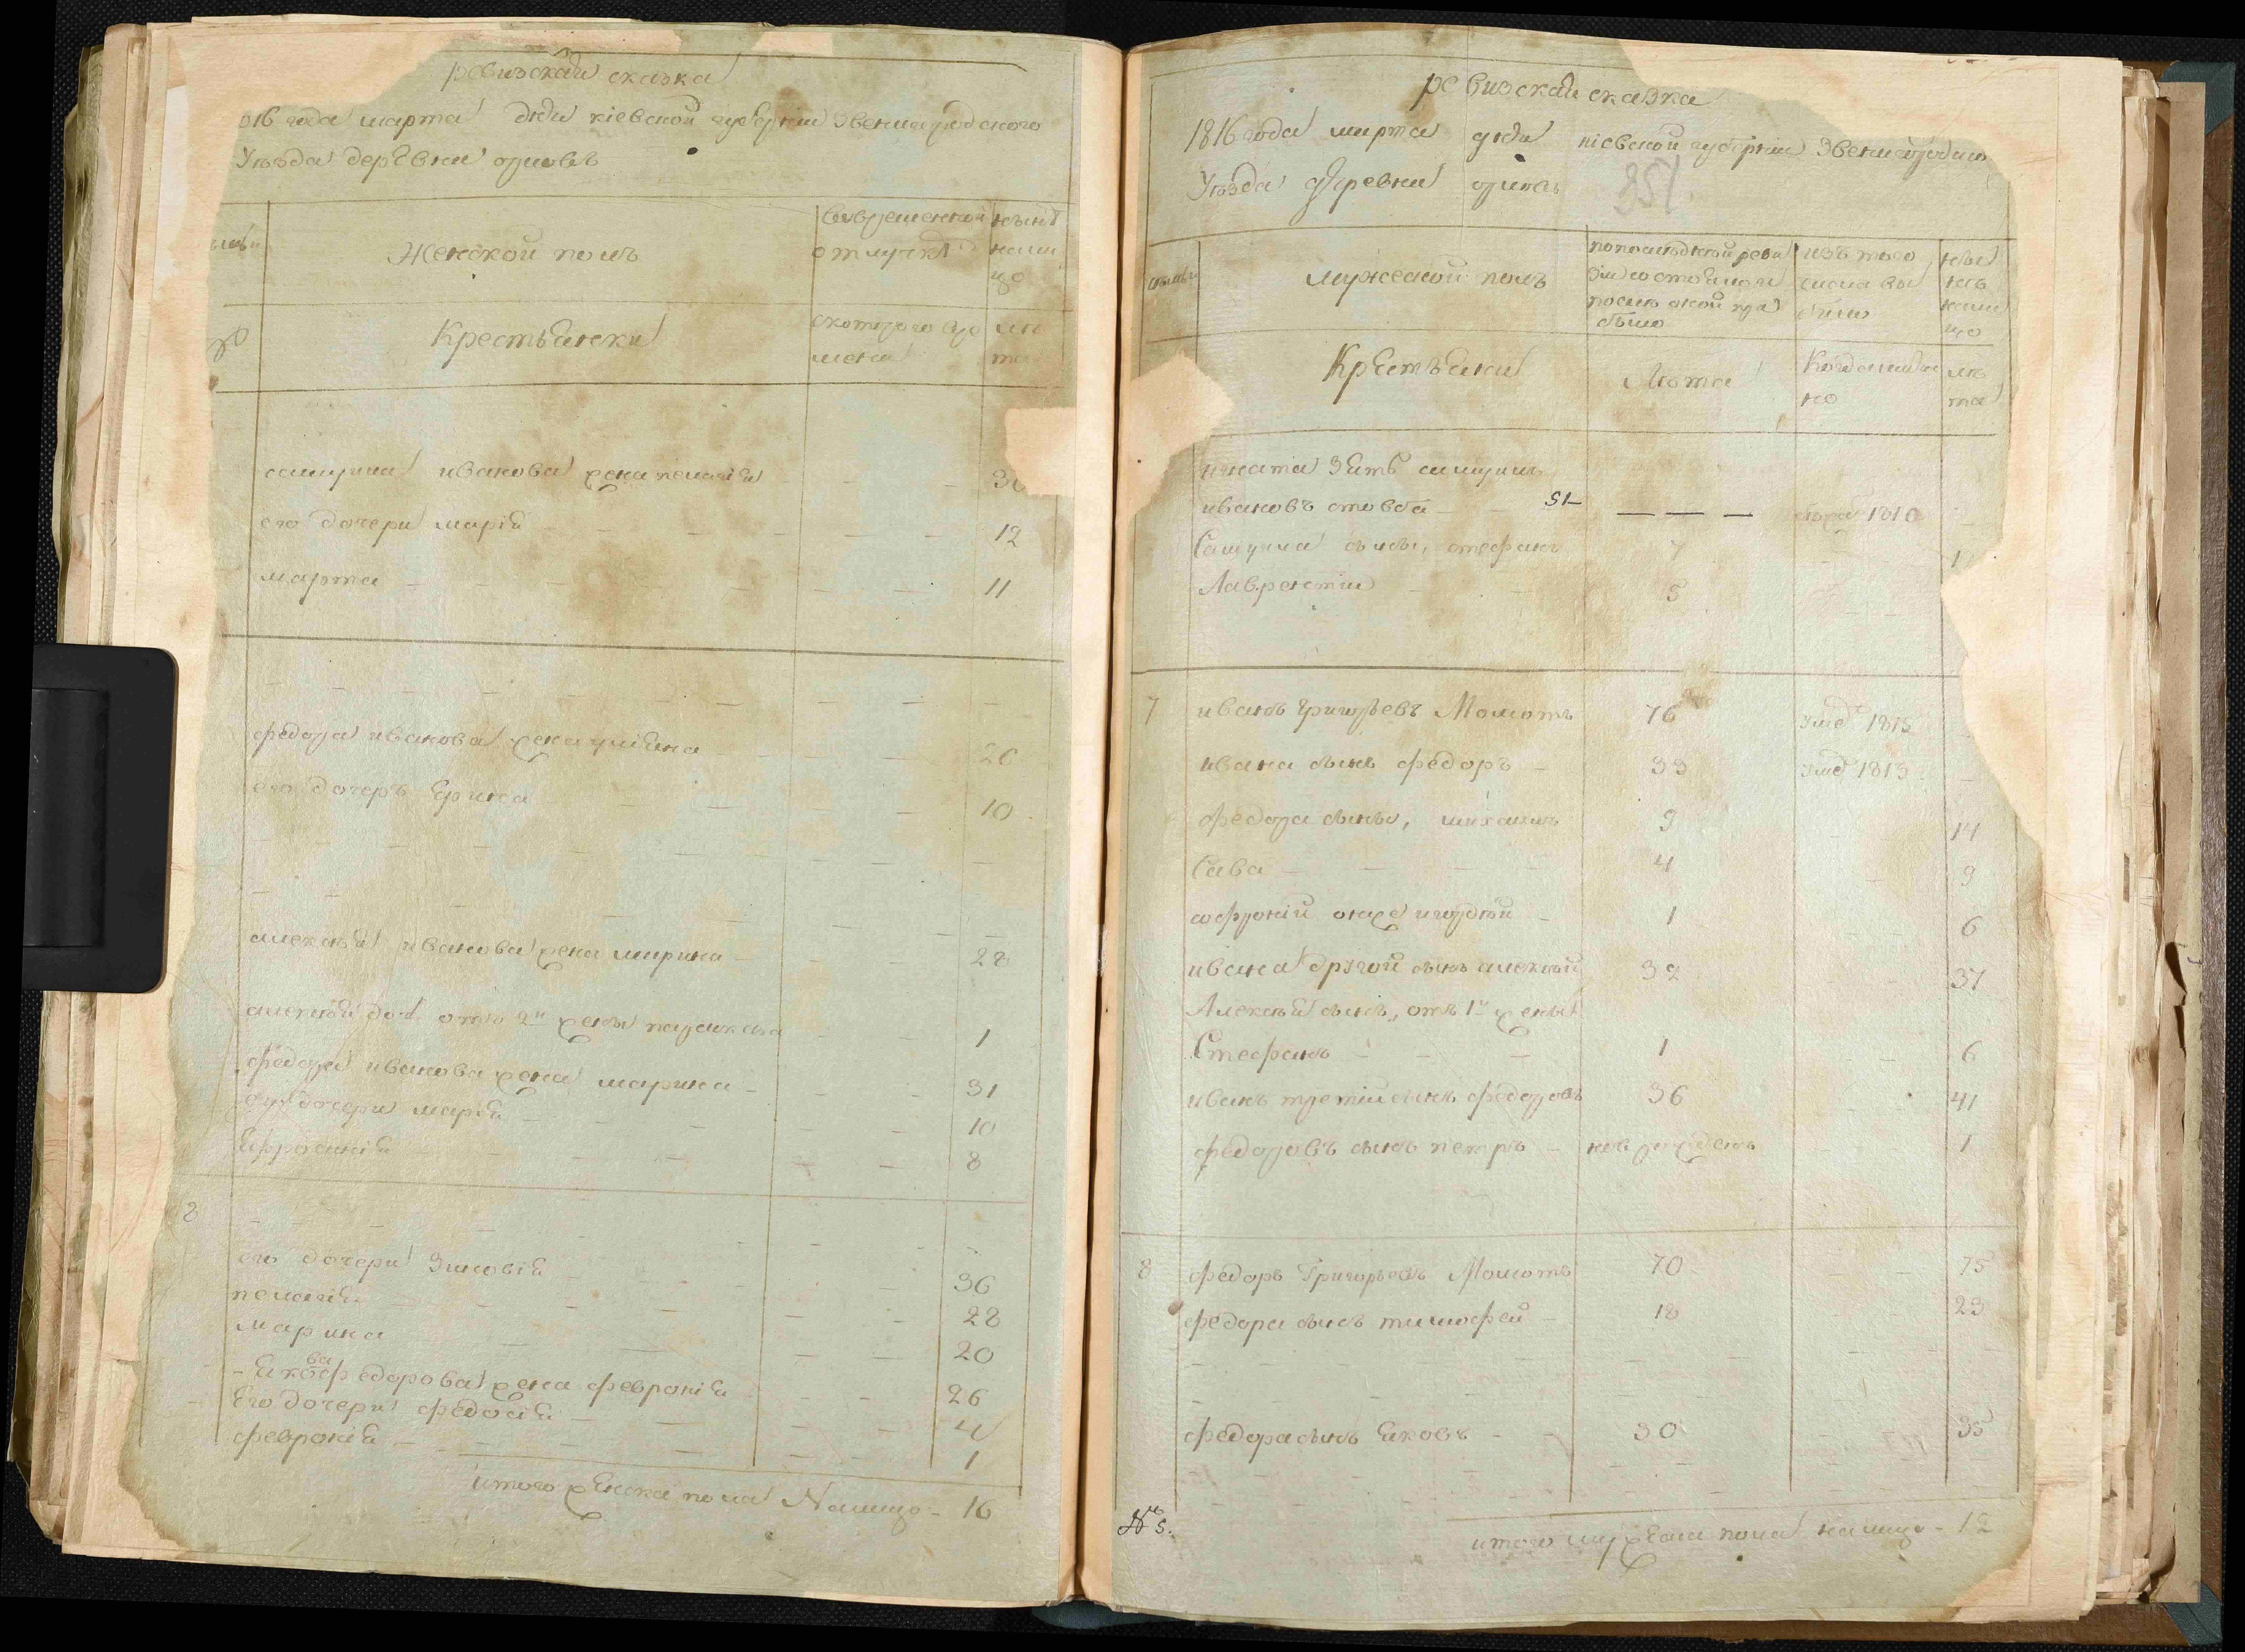 ревизская сказка
816 года марта дня кіевской губерніи Звенигородского
Уѣзда деревни
Женской полъ
вовременной отлучкѣ
нынѣ налицо
Крестьянки
скоторого времени
лѣта
самуила иванова жена пелагія - - 30
его дочери марія - - - - 12
марта - - - - - 11
федора иванова жена уліяна - - 26
его дочерь Ерина - - - 10
алексѣя иванова жена марина - - - 28
алексѣя доч. отъ 2й жены параскева - - 1
федора иванова жена марина - - - 31
его дочери марія - - - 10
Ефросинія - - - - 8
8
его дочери Зиновія - - - 36
пелагія - - - - 28
марина - - - 20
- Якова федорова жена февронія - - 26
Его дочери федосія - - - 4
февронія - - - - 1
итого женска пола Налицо - 16
ревизская сказка
1816 года марта дня кіевской губерніи Звенигородского
Уѣзда деревни
351.
семьи
мужеской полъ
попослѣдней ревизіи состояло и послѣ оной прибыло
изъ того числа выбыло
нынѣ налицо
Крестьяне
Лѣта
Когда именно
лѣта
игната Зять самуилъ
ивановъ стовба - - 51 - — — — 1810 -
Самуила сыны, стефанъ 7 - 1
Лаврентіи - - 5 - -
7 иванъ Григорьевъ Момотъ 76 умре 1815 -
ивана сынъ федоръ - 33 умре 1813 -
федора сыны, михаилъ 9 - 14
Сава - - - - 4 - 9
софроній онже - 1 - - 6
ивана другой сынъ алексѣй 32 - - 37
Алексѣя сынъ, отъ 1й жены
Стефанъ - - - 1 - - 6
иванъ третій сынъ федоровъ 36 - - 41
федоровъ сынъ петръ - новорожденъ - - 1
8 федоръ Григорьевъ Момотъ 70 - - 75
федора сынъ тимофей - 18 - - 23
федора сынъ Яковъ - - 30 - - 35
№ 5.
итого мужеска пола налицо - 12